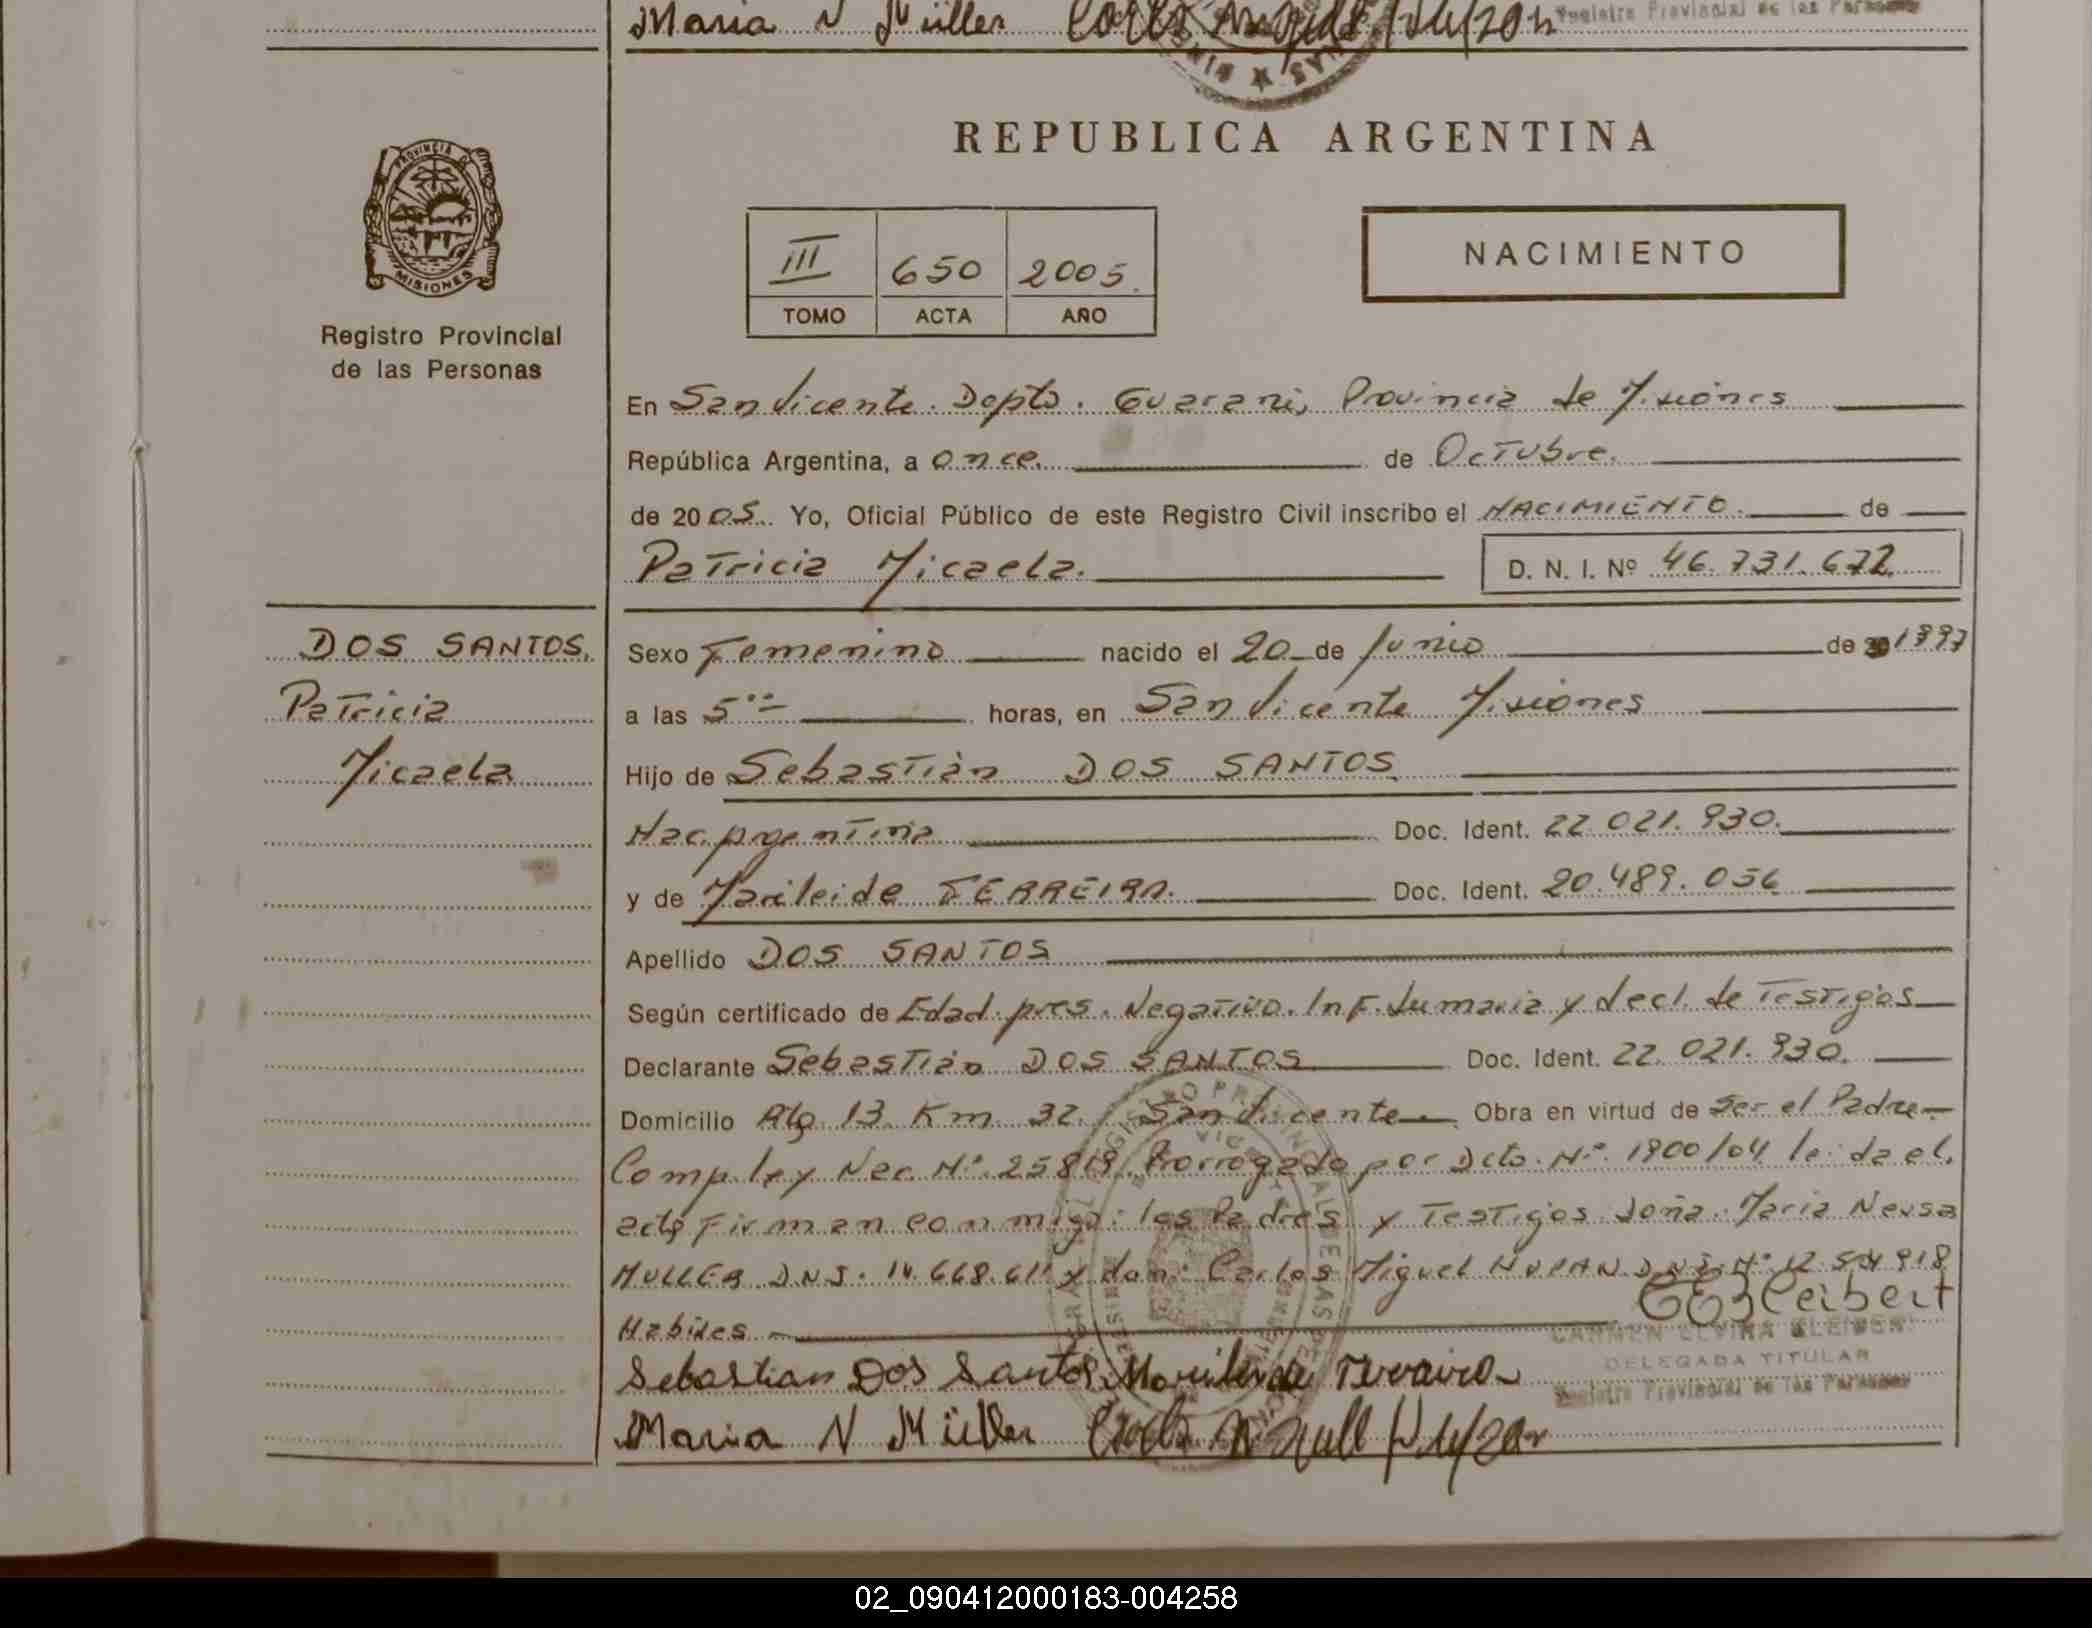 Maria N Müller
Registro Provincial de las Personas
REPUBLICA ARGENTINA
PROVINCIA DE
MISIONES
Registro Provincial
de las Personas
III 650 2005.
TOMO ACTA AÑO
NACIMIENTO
En San Vicente. Dpto. Guarani, Provincia de Misiones
República Argentina, a once. de Octubre.
de 2005. Yo, Oficial Público de este Registro Civil inscribo el NACIMIENTO. de
Patricia Micaela. D. N. I. Nº 46.731.672
DOS SANTOS,
Patricia
Micaela
Sexo Femenino nacido el 20 de Junio de 1997
a las 5 horas, en San Vicente Misiones
Hijo de Sebastián DOS SANTOS
Nac. Argentina Doc. Ident. 22.021.930.
y de Marileide FERREIRA. Doc. Ident. 20.489.056
Apellido DOS SANTOS
Según certificado de Edad pres. Negativo. Inf. Sumaria y decl. de Testigos
Declarante Sebastián DOS SANTOS Doc. Ident. 22.021.930.
Domicilio Alg. 13 Km 32. San Vicente. Obra en virtud de Ser el Padre
Comp. ley Nac. Nº 25819 Prorrogado por Dcto. Nº 1900/04 leida el
acta firman conmigo: los Padres y Testigos doña Maria Neusa
MULLER D.N.I. 14.668.611 y don: Carlos Miguel D.N.I. Nº
Habiles
Sebastian Dos Santos
CARMEN ELVIRA
DELEGADA TITULAR
Registro Provincial de las Personas
Maria N Müller
02_090412000183-004258